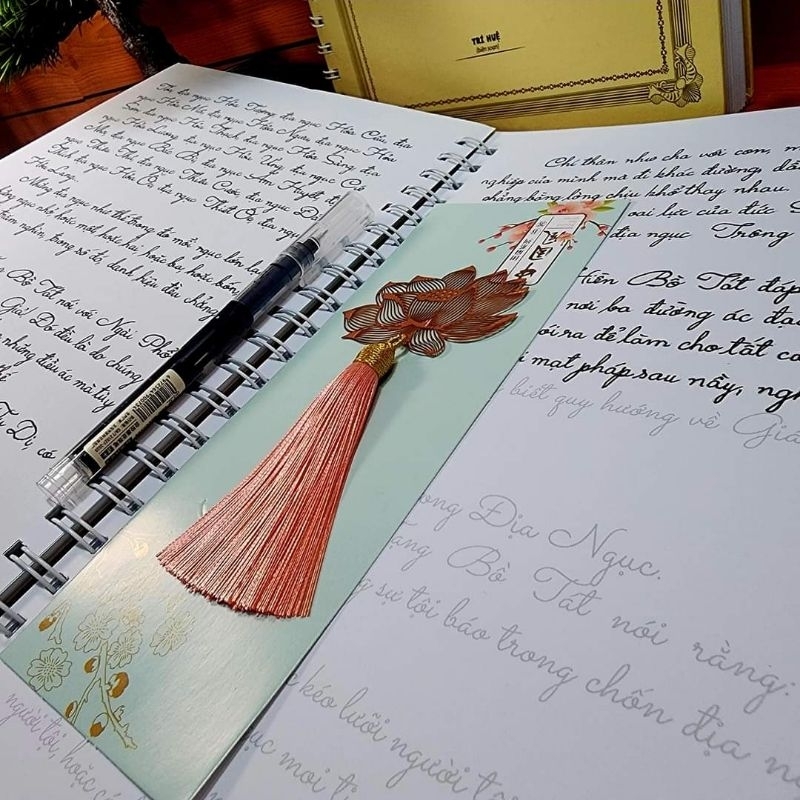 TRÍ HUỆ
(biên soạn)
địa ngục Hỏa Tượng địa ngục Hỏa Cẩu, địa
ngục Hỏa Mã, địa ngục Hỏa Ngưu, địa ngục Hỏa
Sơn, địa ngục Hỏa Thạch, địa ngục Hỏa Sàng, địa
ngục Hỏa Lương, địa ngục Hỏa Ưng, địa ngục Cứ
Nha, địa ngục Bác Bì, địa ngục Ẩm Huyết, địa
ngục Thiêu Thủ, địa ngục Thiêu Cước, địa ngục
Thích, địa ngục Hỏa Ốc, địa ngục Thiết Ốc, địa ngục
Hỏa Lang.
Những địa ngục như thế trong đó mỗi ngục lớn lại
ngục nhỏ hoặc một hoặc hai, hoặc ba, hoặc bốn
nghìn, trong số đó, danh hiệu đều không
Bồ Tát nói với Ngài Phổ
Giả! Đó đều là do chúng
những điều ác mà tùy
có
Chí thân như cha với con, mà
nghiệp của mình mà đi khác đường,
chẳng bằng lòng chịu khổ thay nhau.
oai lực của đức
địa ngục Trong
Hiền Bồ Tát đáp
nơi ba đường ác đạo
nói ra để làm cho tất cả
mạt pháp sau nầy,
biết quy hướng về Giáo
ong Địa Ngục.
Tạng Bồ Tát nói rằng:
sự tội báo trong chốn địa
kéo lưỡi người tội
ngục moi
người tội, hoặc có